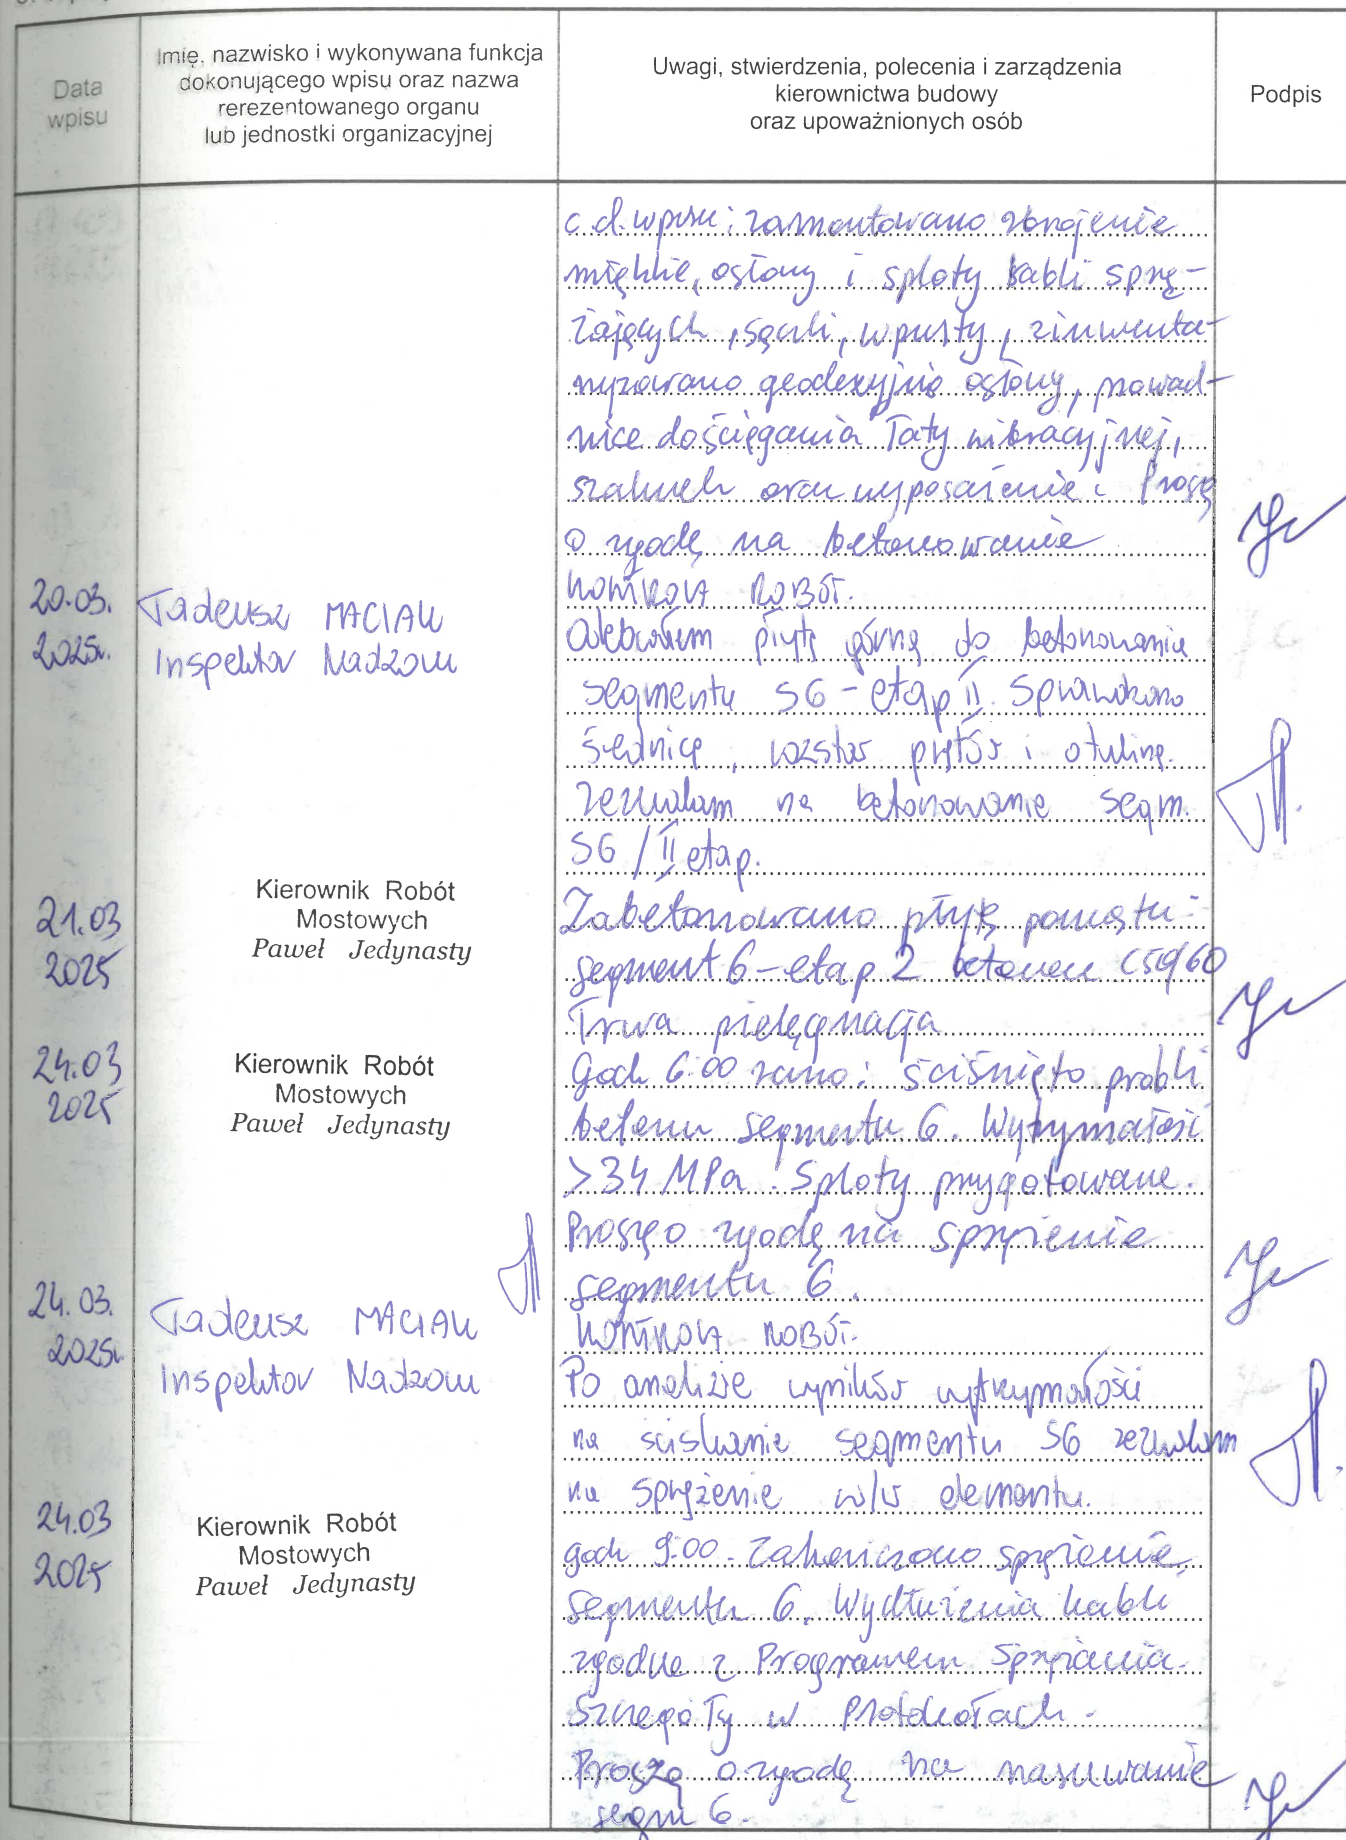 Data
wpisu
Imię, nazwisko i wykonywana funkcja
dokonującego wpisu oraz nazwa
rerezentowanego organu
lub jednostki organizacyjnej
Uwagi, stwierdzenia, polecenia i zarządzenia
kierownictwa budowy
oraz upoważnionych osób
Podpis
c.d. wpisu: zamontowano zbrojenie
miękkie, osłony i sploty kabli sprę-
żających, sączki, wpusty, zinwenta-
ryzowano geodezyjnie osłony, prowad-
nice do ściągania łaty wibracyjnej,
szalunek oraz wyposażenie. Proszę
o zgodę na betonowanie
20.03.
2025r.
Tadeusz MACIAK
Inspektor Nadzoru
KONTROLA ROBÓT.
Odebrałem płytę górną do betonowania
segmentu S6 - etap II. Sprawdzono
średnicę, rozstaw prętów i otulinę.
Zezwalam na betonowanie segm.
S6 / II etap.
21.03
2025
Kierownik Robót
Mostowych
Paweł Jedynasty
Zabetonowano płytę pomostu:
segment 6 - etap 2 betonem C50/60
Trwa pielęgnacja
24.03
2025
Kierownik Robót
Mostowych
Paweł Jedynasty
Godz 6:00 rano: ściśnięto próbki
betonu segmentu 6. Wytrzymałość
>34 MPa. Sploty przygotowane.
Proszę o zgodę na sprężenie
segmentu 6.
24.03.
2025r.
Tadeusz MACIAK
Inspektor Nadzoru
KONTROLA ROBÓT.
Po analizie wyników wytrzymałości
na ściskanie segmentu S6 zezwalam
na sprężenie w/w elementu.
24.03
2025
Kierownik Robót
Mostowych
Paweł Jedynasty
godz 9:00. Zakończono sprężenie
segmentu 6. Wydłużenia kabli
zgodne z Programem Sprężania.
Szczegóły w Protokołach.
Proszę o zgodę na nasuwanie
segm 6.